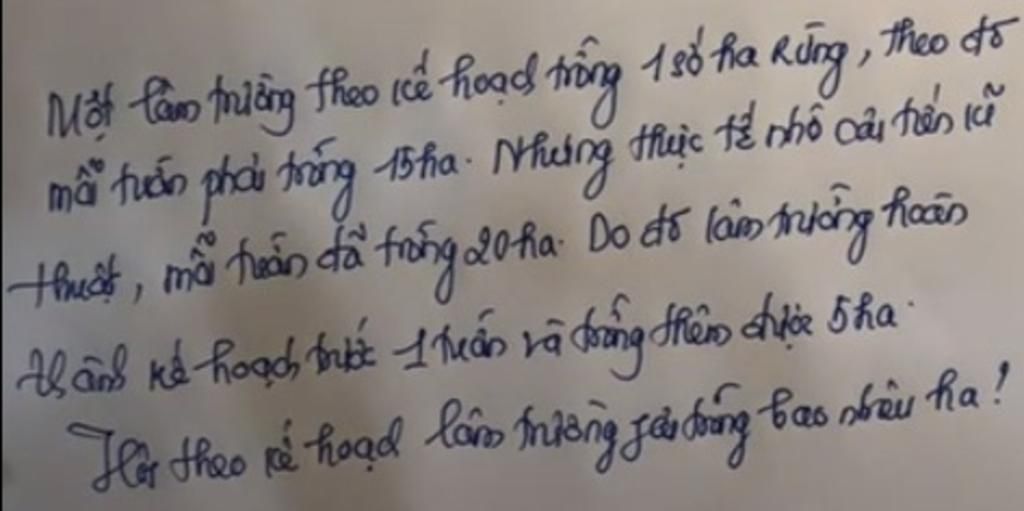 Một lâm trường theo kế hoạch trồng 1 số ha Rừng, theo đó
mỗi tuần phải trồng 15ha. Nhưng thực tế nhờ cải tiến kĩ
thuật, mỗi tuần đã trồng 20ha. Do đó lâm trường hoàn
thành kế hoạch trước 1 tuần và trồng thêm được 5ha.
Hỏi theo kế hoạch lâm trường phải trồng bao nhiêu ha!